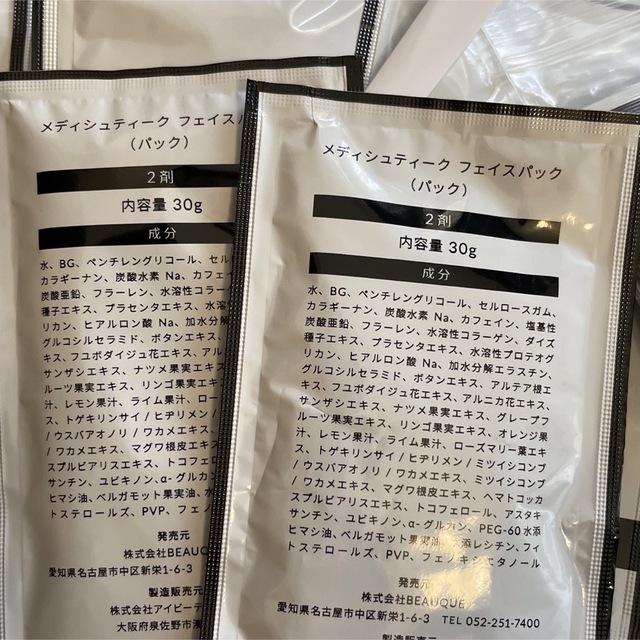 メディシュティーク フェイスパ
（パック）
2剤
内容量 30g
成分
水、BG、ペンチレングリコール、セル
カラギーナン、炭酸水素 Na、カフェイ
酸亜鉛、フラーレン、水溶性コラー
種子エキス、プラセンタエキス、水溶
リカン、ヒアルロン酸 Na、加水分解
グルコシルセラミド、ボタンエキス、
キス、フユボダイジュ花エキス、アル
サンザシエキス、ナツメ果実エキス、
ルーツ果実エキス、リンゴ果実エキス
汁、レモン果汁、ライム果汁、ロー
ス、トゲキリンサイ / ヒヂリメン /
/ ウスバアオノリ / ワカメエキス、
/ ワカメエキス、マグワ根皮エキス、
スプルビアリスエキス、トコフェロ
サンチン、ユビキノン、α- グルカン
ヒマシ油、ベルガモット果実油、水
トステロールズ、PVP、フェノ
発売元
株式会社BEAUQUE
愛知県名古屋市中区新栄1-6-3
製造販売元
株式会社アイビーテ
大阪府泉佐野市湊
メディシュティーク フェイスパック
（パック）
2剤
内容量 30g
成分
水、BG、ペンチレングリコール、セルロースガム、
カラギーナン、炭酸水素 Na、カフェイン、塩基性
炭酸亜鉛、フラーレン、水溶性コラーゲン、ダイズ
種子エキス、プラセンタエキス、水溶性プロテオグ
リカン、ヒアルロン酸 Na、加水分解エラスチン、
グルコシルセラミド、ボタンエキス、アルテア根エ
キス、フユボダイジュ花エキス、アルニカ花エキス、
サンザシエキス、ナツメ果実エキス、グレープフ
ルーツ果実エキス、リンゴ果実エキス、オレンジ果
汁、レモン果汁、ライム果汁、ローズマリー葉エキ
ス、トゲキリンサイ / ヒヂリメン / ミツイシコンブ
/ ウスバアオノリ / ワカメエキス、ミツイシコンブ
/ ワカメエキス、マグワ根皮エキス、ヘマトコッカ
スプルビアリスエキス、トコフェロール、アスタキ
サンチン、ユビキノン、α- グルカン、PEG-60 水添
ヒマシ油、ベルガモット果実油、水添レシチン、フィ
トステロールズ、PVP、フェノキシエタノール
発売元
株式会社BEAUQUE
愛知県名古屋市中区新栄1-6-3 TEL 052-251-7400
製造販売元